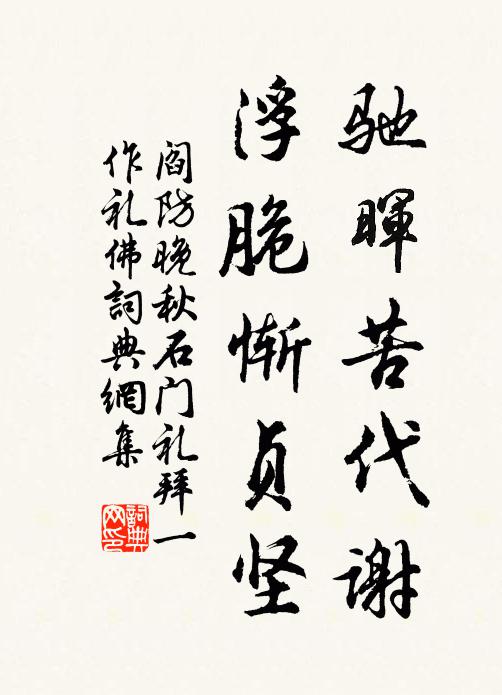 驰暉苦代谢
浮脆惭贞坚
阎防晚秋石门礼拜一
作礼佛詞典網集
詞典
网印